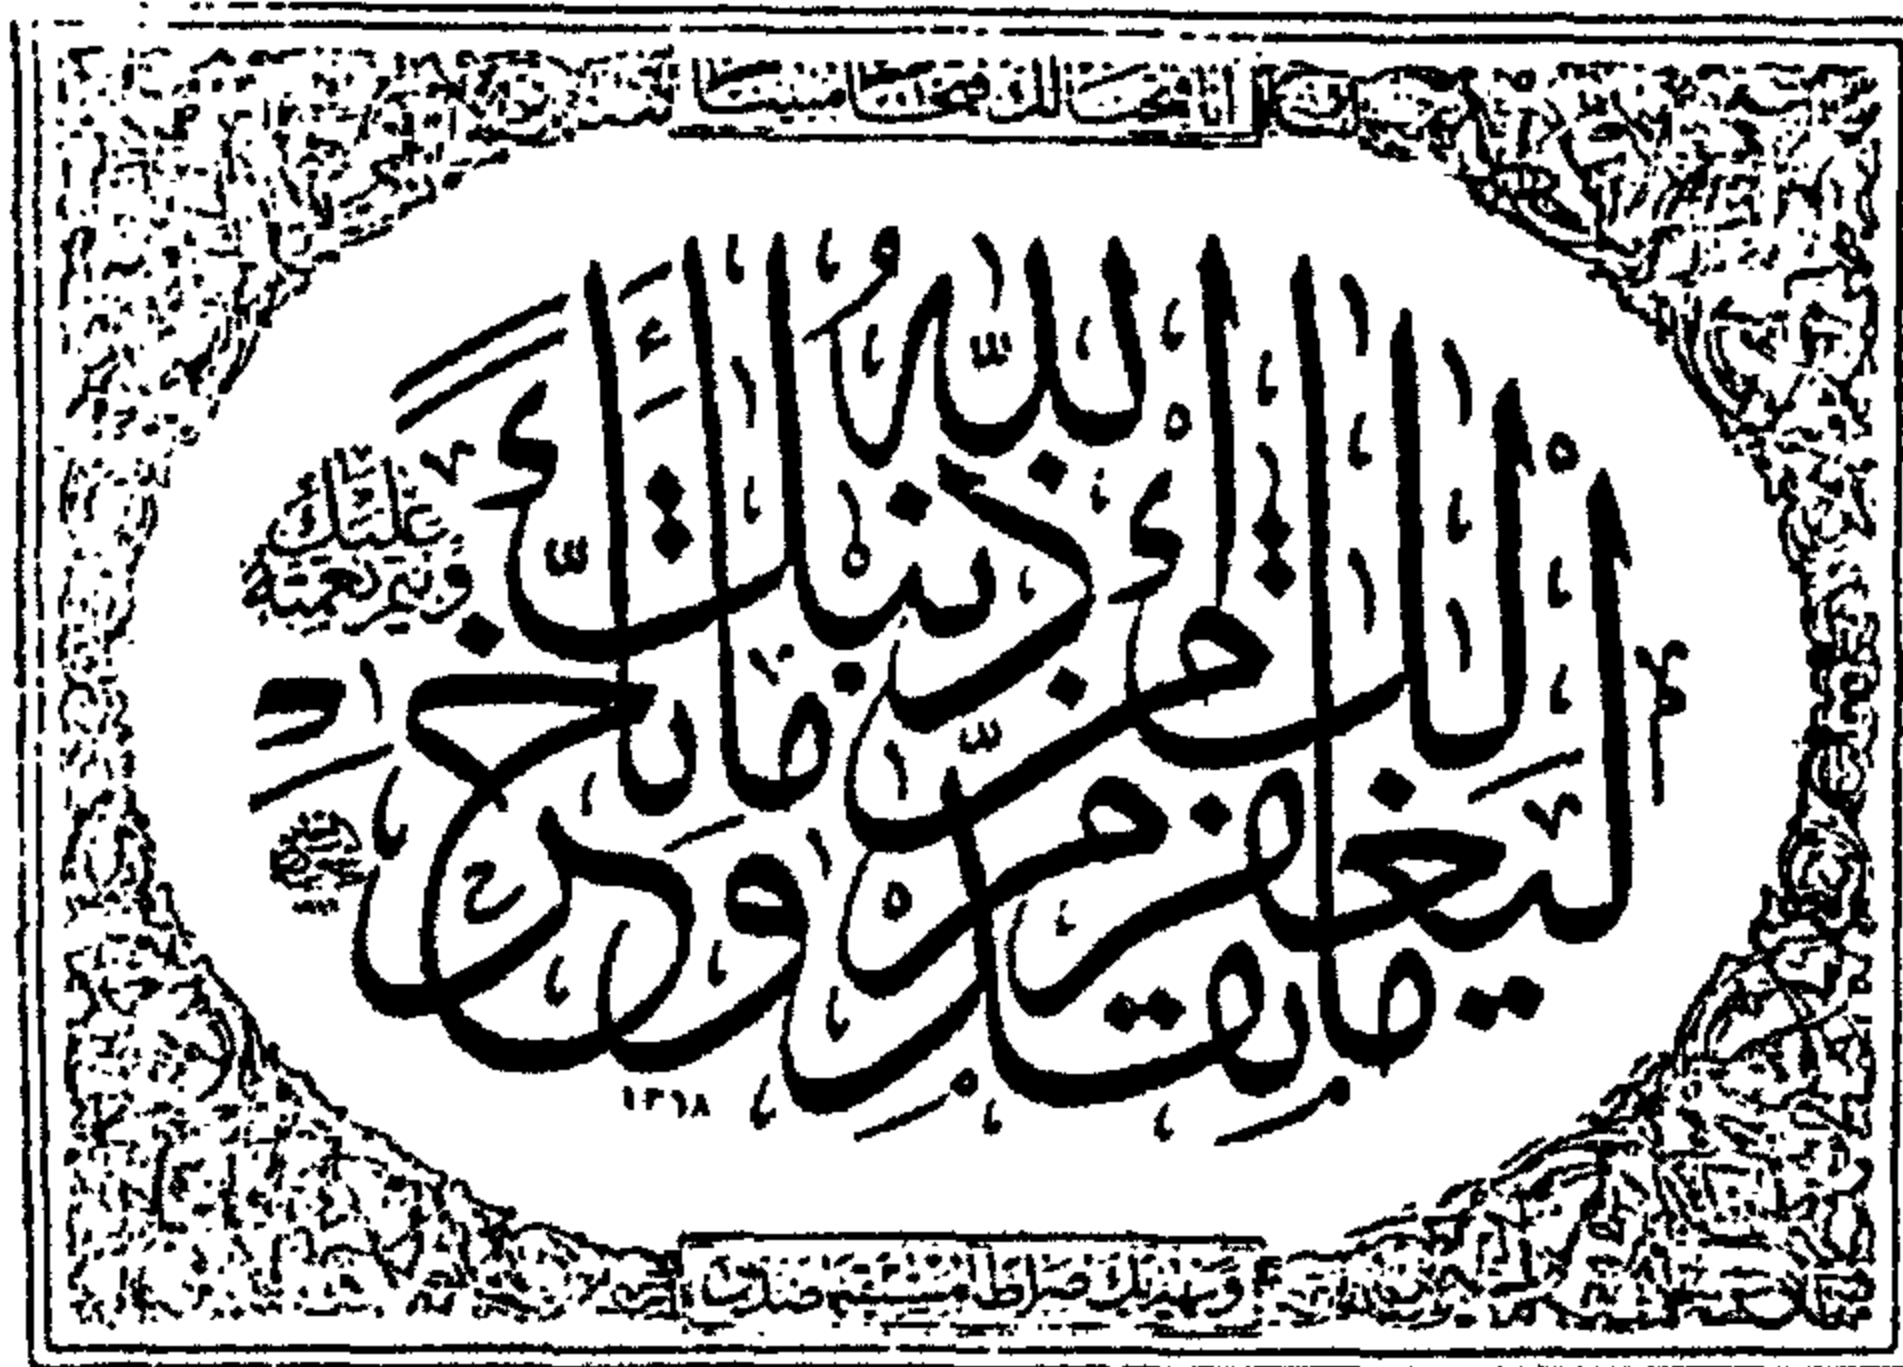 انا فتحنا لك فتحا مبينا
ليغفر لك الله ما تقدم من ذنبك وما تأخر
ويتم نعمته
عليك
ويهديك صراطا مستقيما صدق
١٣٦٨